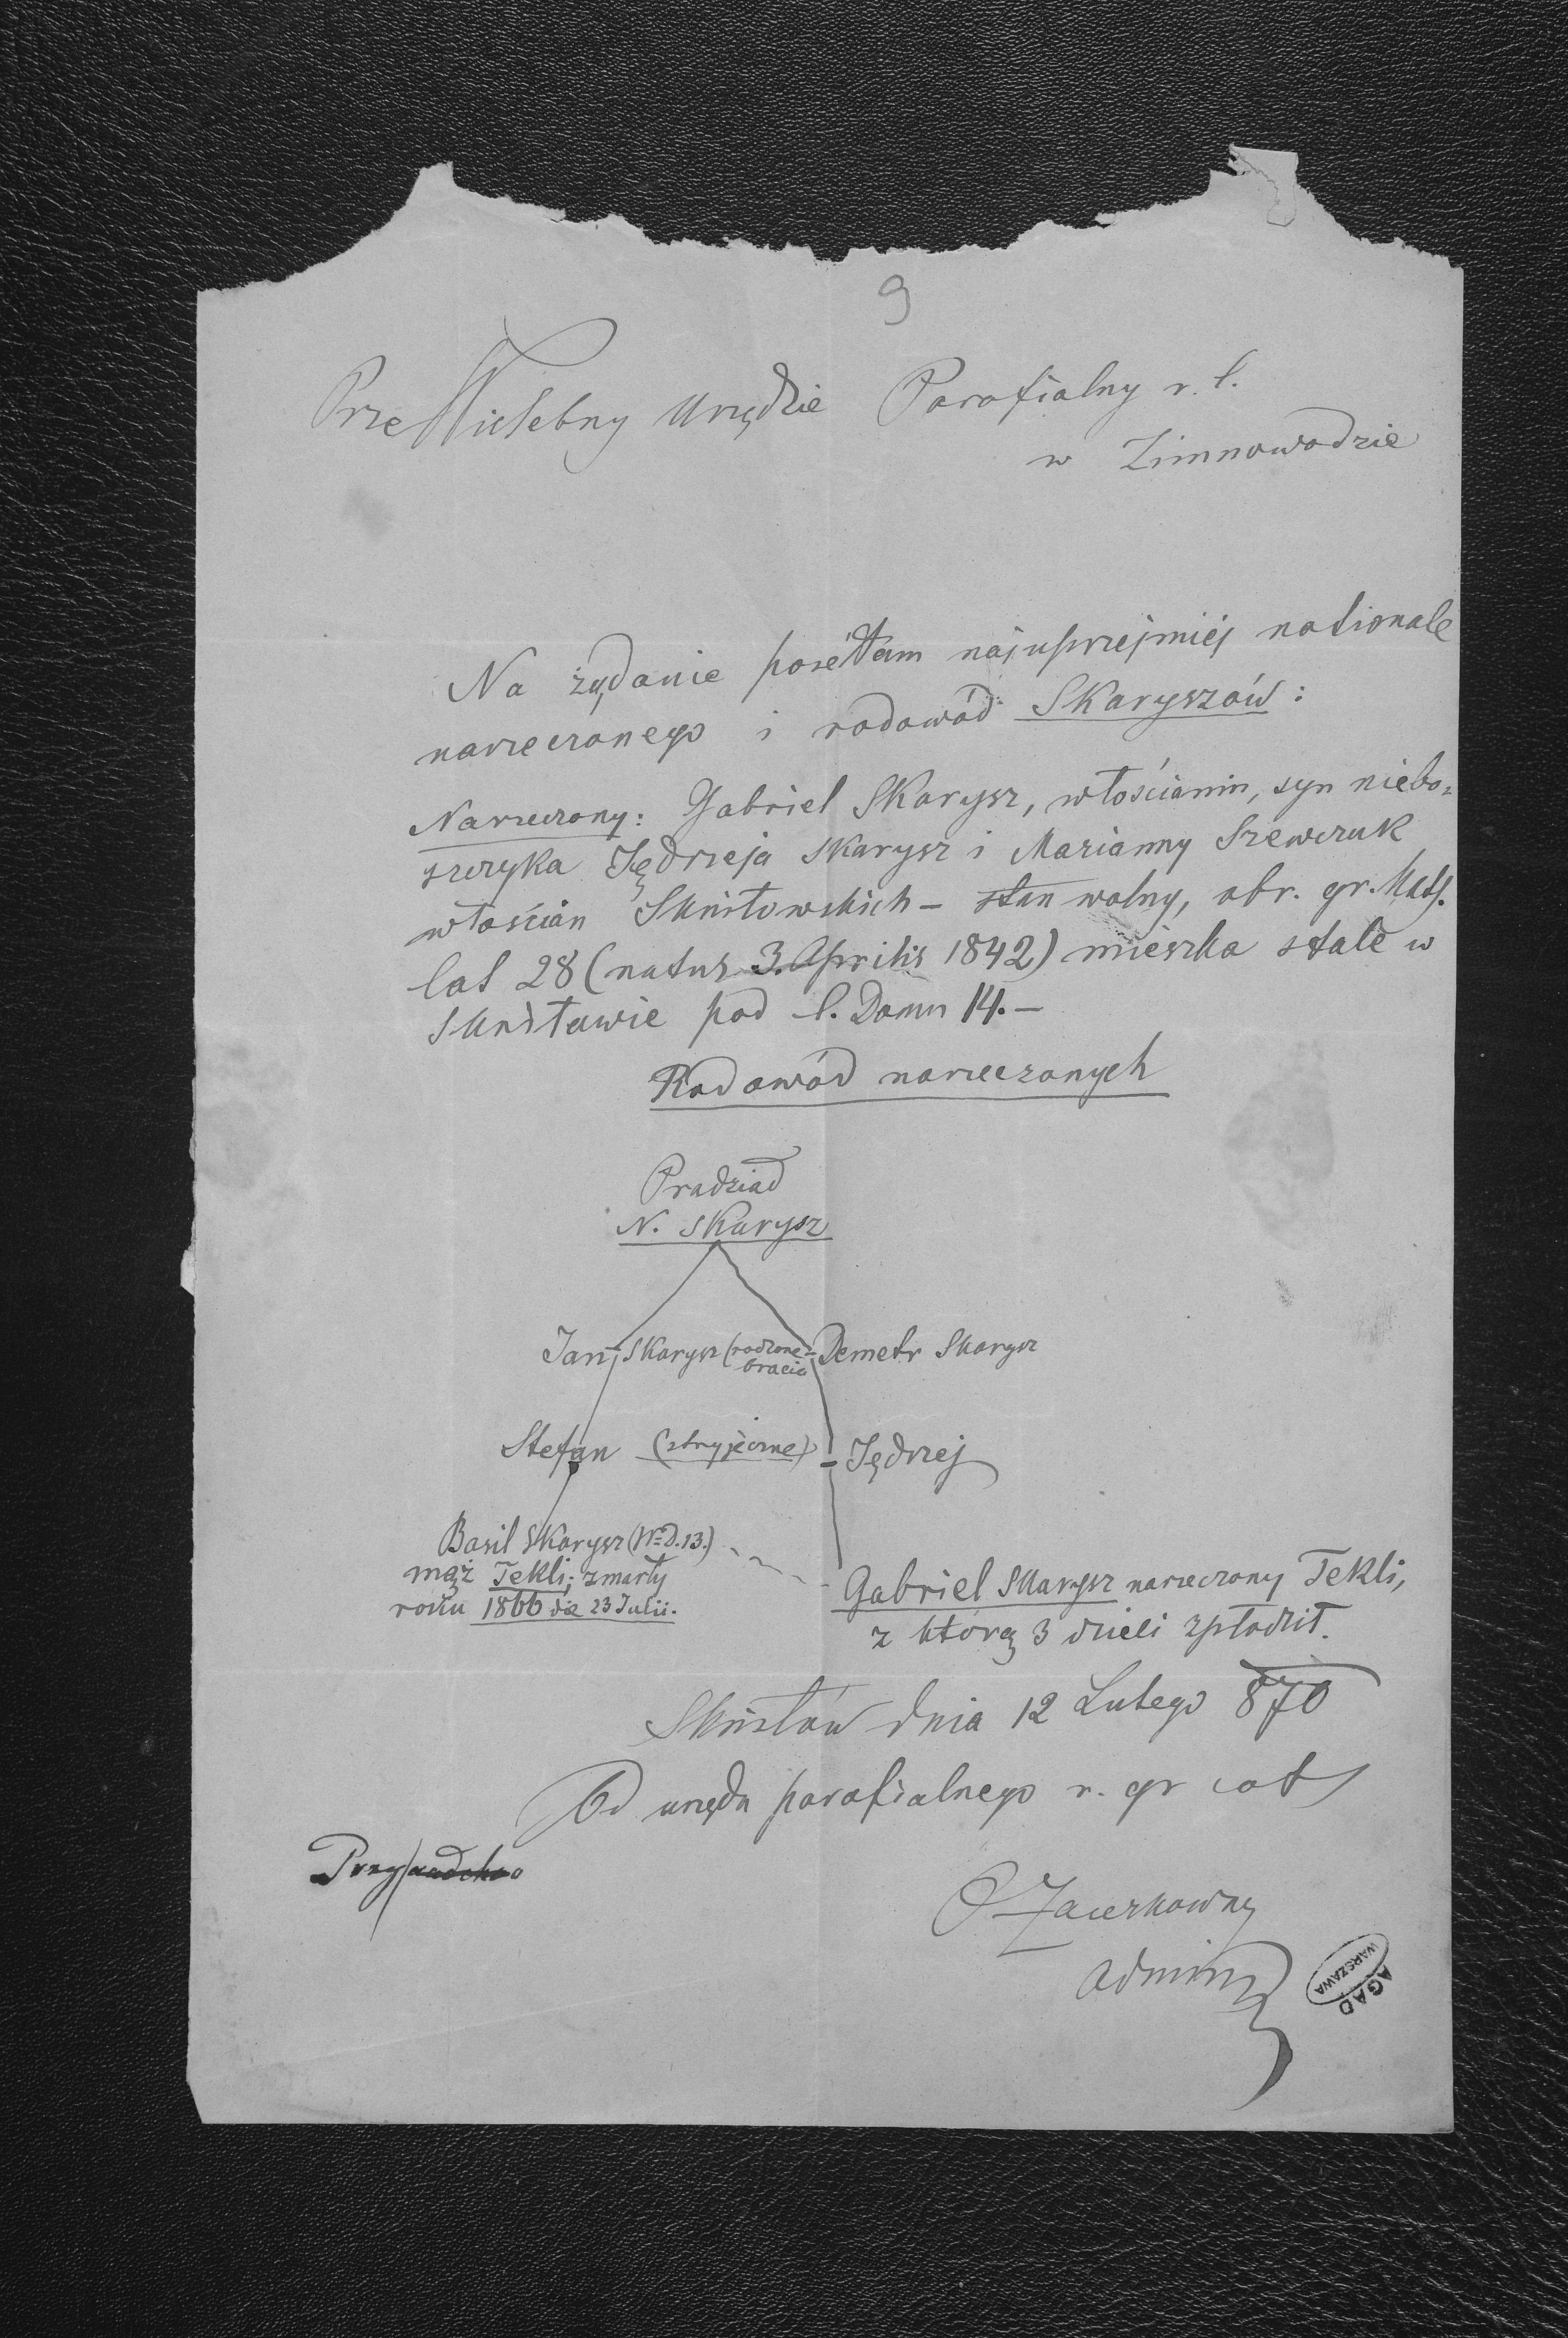 9
PrzeWielebny Urzędzie Parafialny r. l.
w Zimnowodzie
Na żądanie posełam najuprzejmiej nationale
narzeczonego i rodowód Skaryszów:
Narzeczony: Gabriel Skarysz, włościanin, syn niebo-
szczyka Jędrzeja Skarysz i Marianny Szewczuk
włościan Skniłowskich – stan wolny, obr. gr.
lat 28 (natus 3. Aprilis 1842) mieszka stale w
Skniławie pod l. Domu 14. –
Rodowód narzeczonych
Pradziad
N. Skarysz
Jan Skarysz (rodzone bracia) – Demetr Skarysz
Stefan (stryjeczne) – Jędrzej
Basil Skarysz (Nr D. 13.)
mąż Tekli, zmarły
roku 1866 die 23 Julii.
Gabriel Skarysz narzeczony Tekli,
z którą 3 dzieli zpłodził.
Skniłów dnia 12 Lutego 870
Od urzędu parafialnego r. gr cat
admin
AGAD
WARSZAWA